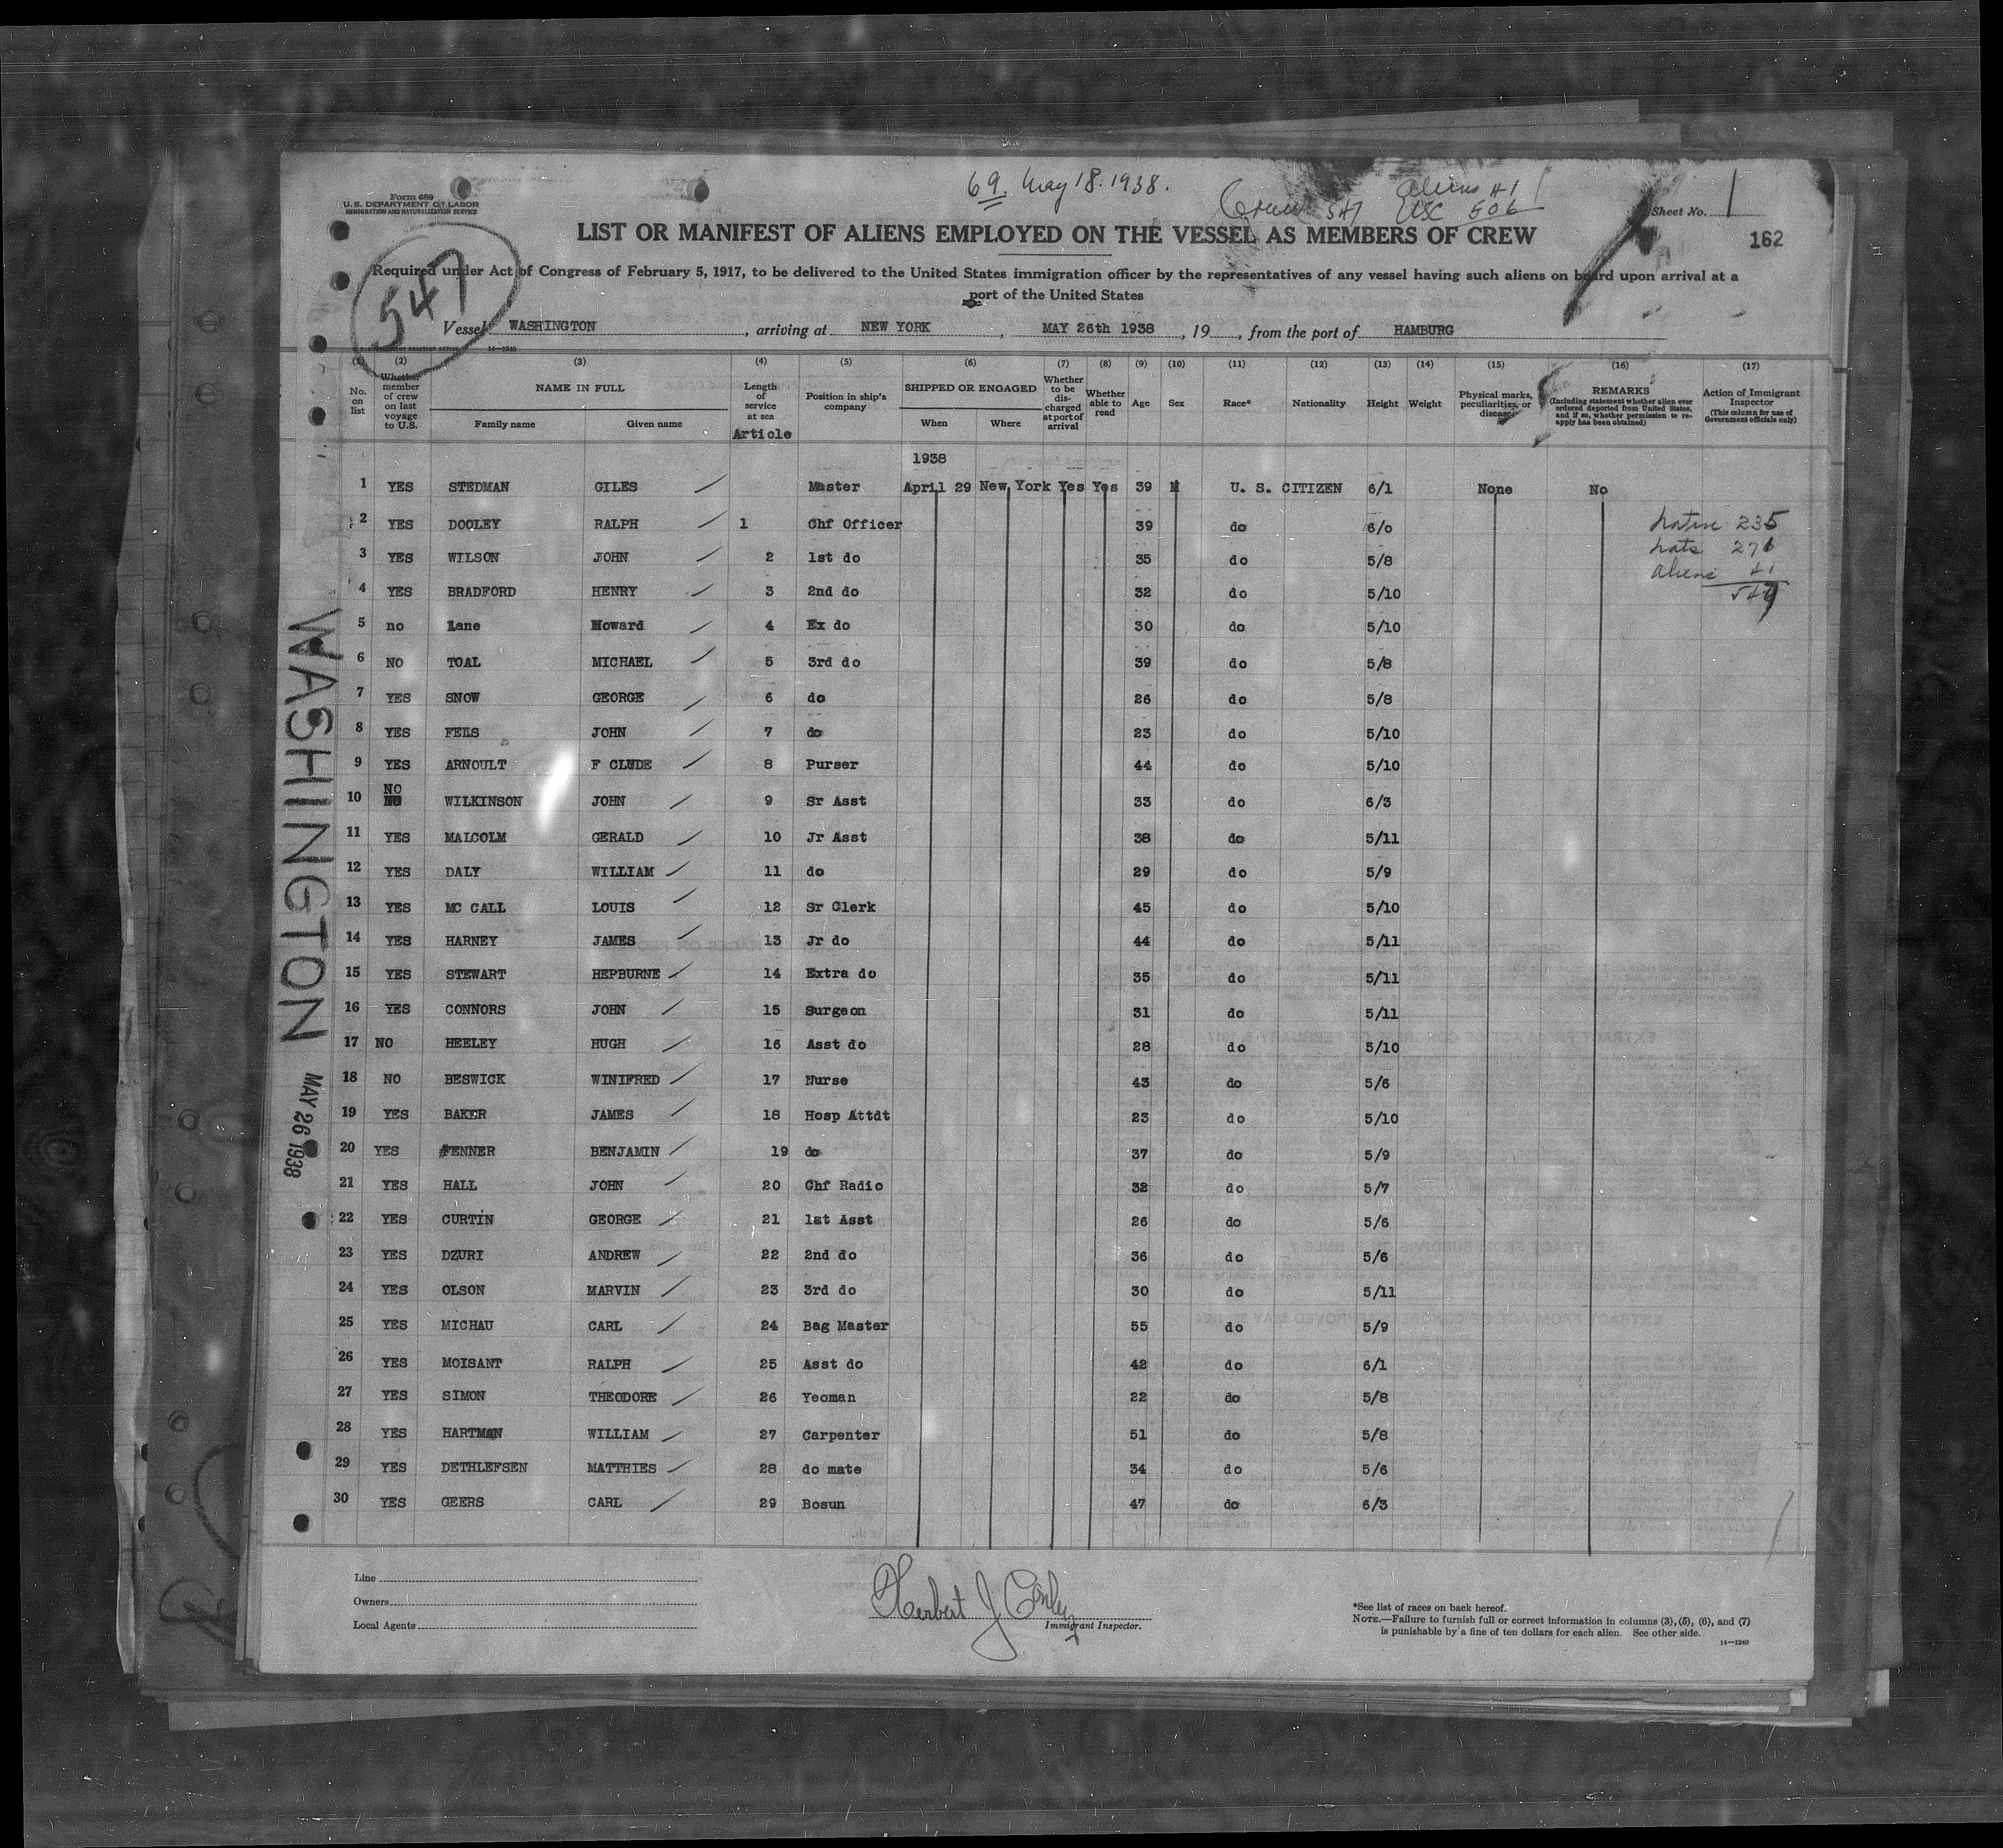 69. May 18. 1938.
Crew 547 aliens 41
USC 506
Form 680
U.S. DEPARTMENT OF LABOR
IMMIGRATION AND NATURALIZATION SERVICE
Sheet No. 1
LIST OR MANIFEST OF ALIENS EMPLOYED ON THE VESSEL AS MEMBERS OF CREW
162
Required under Act of Congress of February 5, 1917, to be delivered to the United States immigration officer by the representatives of any vessel having such aliens on board upon arrival at a
port of the United States
547
Vessel WASHINGTON, arriving at NEW YORK, MAY 26th 1938, 19, from the port of HAMBURG
14—1240
(1) (2) (3) (4) (5) (6) (7) (8) (9) (10) (11) (12) (13) (14) (15) (16) (17)
No. on list
Whether member of crew on last voyage to U.S.
NAME IN FULL
Family name
Given name
Length of service at sea
Article
Position in ship's company
SHIPPED OR ENGAGED
When
Where
Whether to be discharged at port of arrival
Whether able to read
Age
Sex
Race*
Nationality
Height
Weight
Physical marks, peculiarities, or disease
REMARKS
(Including statement whether alien ever ordered deported from United States, and if so, whether permission to reapply has been obtained)
Action of Immigrant Inspector
(This column for use of Government officials only)
1938
1 YES STEDMAN GILES Master April 29 New York Yes Yes 39 M U. S. CITIZEN 6/1 None No
2 YES DOOLEY RALPH 1 Chf Officer 39 do 6/0
native 235
3 YES WILSON JOHN 2 1st do 35 do 5/8
nats 271
aliens 41
4 YES BRADFORD HENRY 3 2nd do 32 do 5/10
547
5 no Lane Howard 4 Ex do 30 do 5/10
6 NO TOAL MICHAEL 5 3rd do 39 do 5/8
7 YES SNOW GEORGE 6 do 26 do 5/8
8 YES FELS JOHN 7 do 23 do 5/10
9 YES ARNOULT F CLUDE 8 Purser 44 do 5/10
10 NO WILKINSON JOHN 9 Sr Asst 33 do 6/3
11 YES MALCOLM GERALD 10 Jr Asst 38 do 5/11
12 YES DALY WILLIAM 11 do 29 do 5/9
13 YES MC CALL LOUIS 12 Sr Clerk 45 do 5/10
14 YES HARNEY JAMES 13 Jr do 44 do 5/11
15 YES STEWART HEPBURNE 14 Extra do 35 do 5/11
16 YES CONNORS JOHN 15 Surgeon 31 do 5/11
17 NO HEELEY HUGH 16 Asst do 28 do 5/10
18 NO BESWICK WINIFRED 17 Nurse 43 do 5/6
19 YES BAKER JAMES 18 Hosp Attdt 23 do 5/10
20 YES FENNER BENJAMIN 19 do 37 do 5/9
21 YES HALL JOHN 20 Chf Radio 32 do 5/7
22 YES CURTIN GEORGE 21 1at Asst 26 do 5/6
23 YES DZURI ANDREW 22 2nd do 36 do 5/6
24 YES OLSON MARVIN 23 3rd do 30 do 5/11
25 YES MICHAU CARL 24 Bag Master 55 do 5/9
26 YES MOISANT RALPH 25 Asst do 42 do 6/1
27 YES SIMON THEODORE 26 Yeoman 22 do 5/8
28 YES HARTMAN WILLIAM 27 Carpenter 51 do 5/8
29 YES DETHLEFSEN MATTHIES 28 do mate 34 do 5/6
30 YES GEERS CARL 29 Bosun 47 do 6/3
WASHINGTON MAY 26 1938
Line
Owners
Local Agents
Herbert J Conley
Immigrant Inspector.
*See list of races on back hereof.
NOTE.—Failure to furnish full or correct information in columns (3), (5), (6), and (7)
is punishable by a fine of ten dollars for each alien. See other side.
14—1240